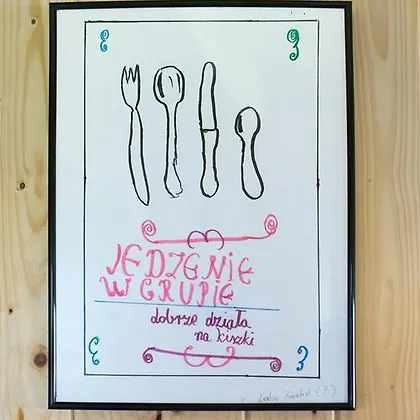 JEDZENIE
W GRUPIE
dobrze działa
na kiszki
(7)